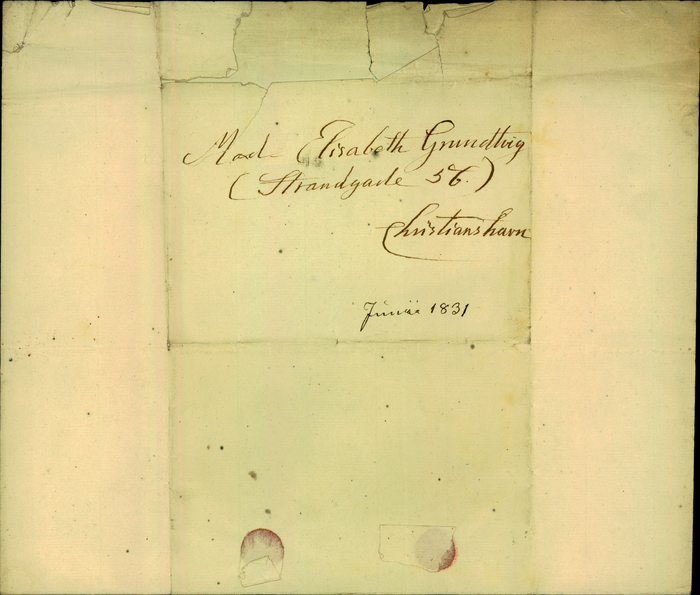 Mad. Elisabeth Grundtvig
(Strandgade 56.)
Christianshavn
Junii 1831